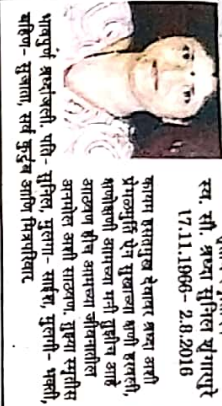 स्व. सौ. श्रध्दा सुनिल घुगापुरे
17.11.1966 - 2.8.2016
कायम हसतमुख देखणार श्रध्दा अशी
प्रेमळमुर्ती ऐन सुखाच्या क्षणी हरवली,
क्षणोक्षणी आमच्या मनी तुझीच आहे
आठवण हीच आमच्या जीवनातील
अनमोल अशी साठवण, तुझ्या स्मृतीस
भावपुर्ण श्रध्दांजली. पति- सुनिल, मुलगा- साईश, मुलगी- भक्ती,
बहिण- सुजाता, सर्व कुटुंब आणि मित्रपरिवार.